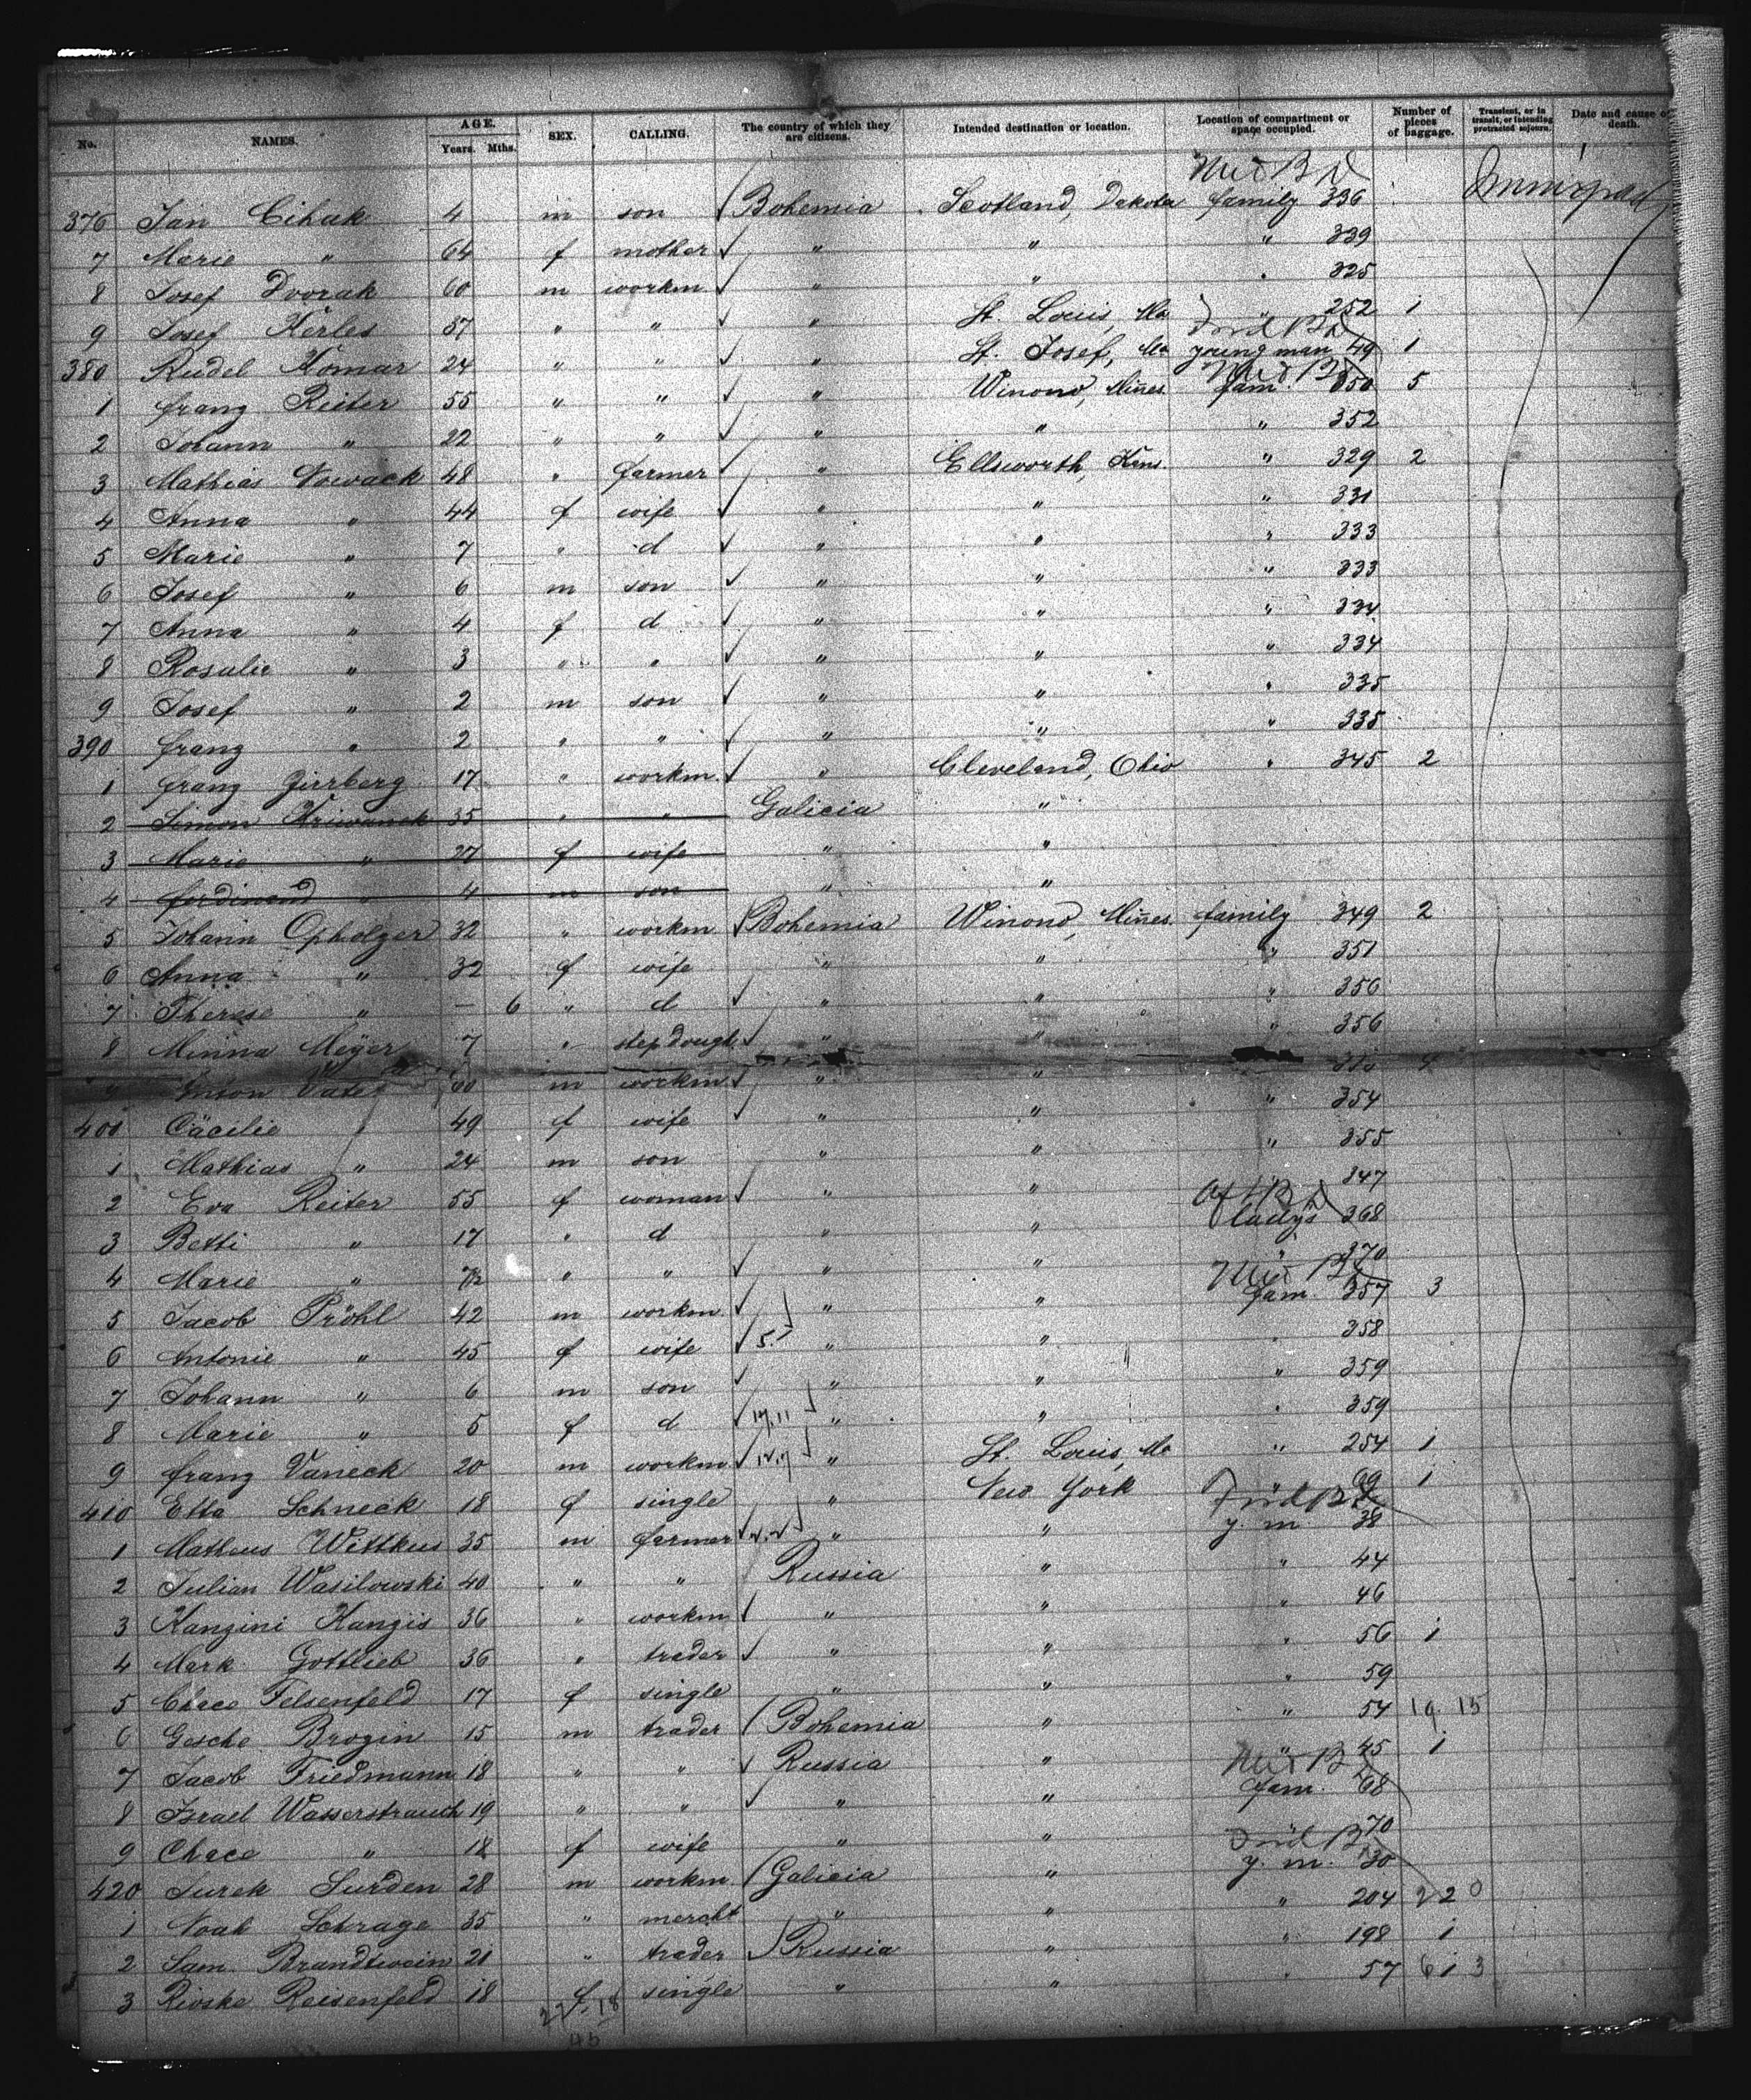 No. NAMES. AGE. Years. Mths. SEX. CALLING. The country of which they are citizens. Intended destination or location. Location of compartment or space occupied. Number of pieces of baggage. Transient, or in transit, or intending protracted sojourn. Date and cause of death.
Mid B D
376 Jan Cihak 4 m son Bohemia Scotland, Dakota family 336
7 Marie " 64 f mother " " " 339
8 Josef Dvorak 60 m workm " " " 325
9 Josef Kerles 37 " " " St. Louis, Mo " 252 1
380 Rudel Komar 24 " " " St. Josef, Mo young man 49 1
1 franz Reiter 55 " " " Winona, Mines. fam. 350 5
2 Johann " 22 " " " " " 352
3 Mathias Nowack 48 " farmer " Ellsworth, Kans. " 329 2
4 Anna " 44 f wife " " " 331
5 Marie " 7 " d " " " 333
6 Josef " 6 m son " " " 333
7 Anna " 4 f d " " " 334
8 Rosalie " 3 " " " " " 334
9 Josef " 2 m son " " " 335
390 franz " 2 " " " " " 335
1 franz Zirrberg 17 " workm. " Cleveland, Ohio " 345 2
2 Simon Kriwanek 35 " " Galicia "
3 Marie " 27 f wife " "
4 ferdinand " 4 m son " "
5 Johann Opholzer 32 " workm Bohemia Winona, Mines. family 349 2
6 Anna " 32 f wife " " " 351
7 Therese " — 6 " d " " " 356
8 Minna Meÿer 7 " stepdought. " " " 356
9 Anton Vater 60 m workm " "
400 Cäcilie 49 f wife " " " 354
1 Mathias " 24 m son " " " 355
2 Eva Reiter 55 f woman " " 347
Aft B D
3 Betti " 17 " d " " lady's 368
4 Marie " " " " " " 370
Mid B D
5 Jacob Pröhl 42 m workm. " " fam. 357 3
6 Antonie " 45 f wife " " " 358
7 Johann " 6 m son " " " 359
8 Marie " 5 f d " " " 359
9 franz Vaneck 20 m workm " St. Louis, Mo " 254 1
410 Etta Schneck 18 f single " New York " 69 1
1 Matheus Wittkus 35 m farmer " " y. m 38
2 Julian Wasilowski 40 " " Russia " " 44
3 Kanzini Kanzis 36 " workm " " " 46
4 Mark Gottlieb 36 " trader " " " 56 1
5 Chace Felsenfeld 17 f single " " " 59
6 Gesche Brozin 15 m trader Bohemia " " 54 19. 15
7 Jacob Friedmann 18 " " Russia " " 45 1
Mid B D
8 Israel Wasserstrauch 19 " " " " fam. 68
9 Chace " 18 f wife " " " 70
420 Jurek Surden 28 m workm Galicia " y. m. 30
1 Noah Schrage 35 " mercht " " " 204 2 2 0
2 Sam. Brandwein 21 " trader Russia " " 198 1
3 Rioske Reisenfeld 18 f single " " " 57 6 1 3
27. 18
45